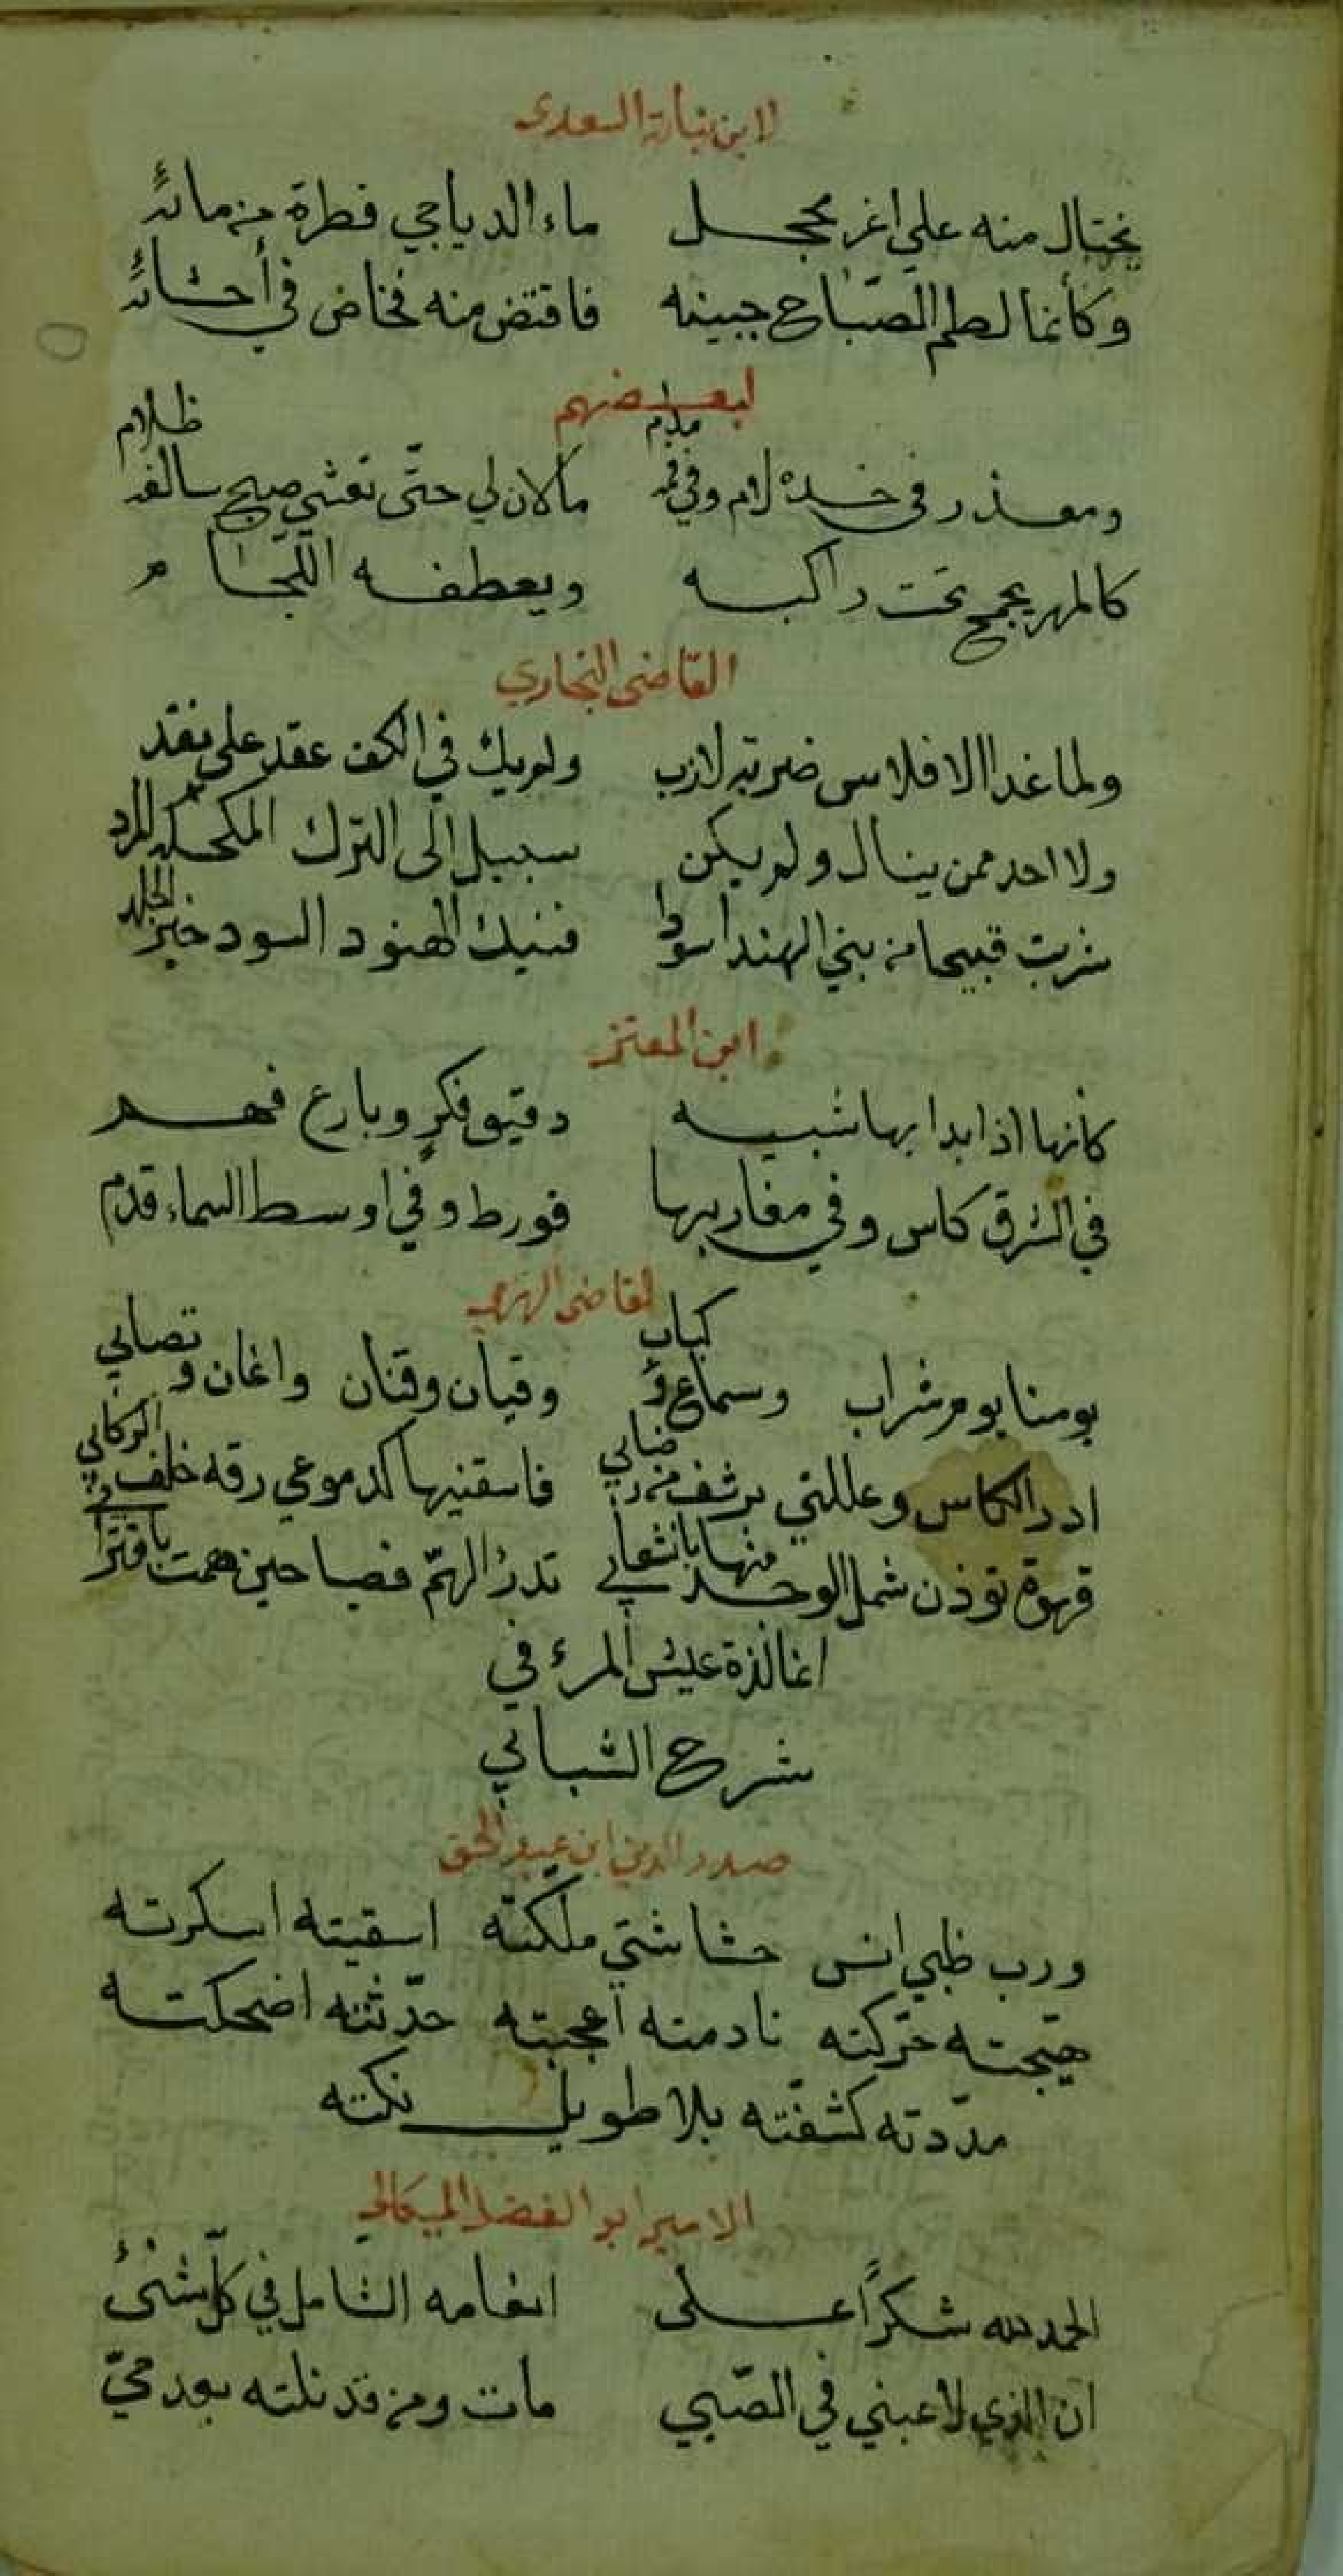 لابن نباتة السعدى
يختال منه على اغر محجل ماء الدياجي قطرة من مائه
وكأنما لطم الصباح جبينه فاقتض منه فخاض في أحشائه
لبعضهم
ومعذر في خده لام وفي فمه مدام ما لان لي حتى تغشى صبح سالفه ظلام
كالمهر يجمح تحت راكبه ويعطفه اللجام
القاضى البخاري
ولما غدا الافلاس ضربة لازب ولم يك في الكف عقد على نقد
ولا احد ممن ينال ولم يكن سبيل الى الترك المكحلة المرد
شربت قبيحا من بني الهند اسودا فنيك الهنود السود خير الجلد
ابن المعتز
كأنها اذا بدا بها شبيه دقيق فكرٍ وبارع فهم
في الشرق كاس وفي مغاربها قورط وفي اوسط السماء قدم
لقاضى
يومنا يوم شراب وسماع و كباب وقيان وقنان واغان وتصابي
ادر الكاس وعللتي برشف من رضابي فاسقنيها كدموعي رقة خلف
قهوة توذن شمل الوجد منها بانشعابي تدر الهمّ فصيا حين همت باقتراب
انما لذة عيش المرء في
شرح الشبابي
صدر الدين ابن عبد الحق
ورب ظبي انس حشاشتي ملكته اسقيته اسكرته
هيّجته حرّكته نادمته أعجبته حدّثته اضحكته
مدّدته كشفّته بلا طويل نكته
الامير ابو الفضل الميكالى
الحمد لله شكرًا على انعامه الشامل في كلّ شئ
ان الذي لاعبني في الصّبي مات ومن قد نلته بعد حيّ